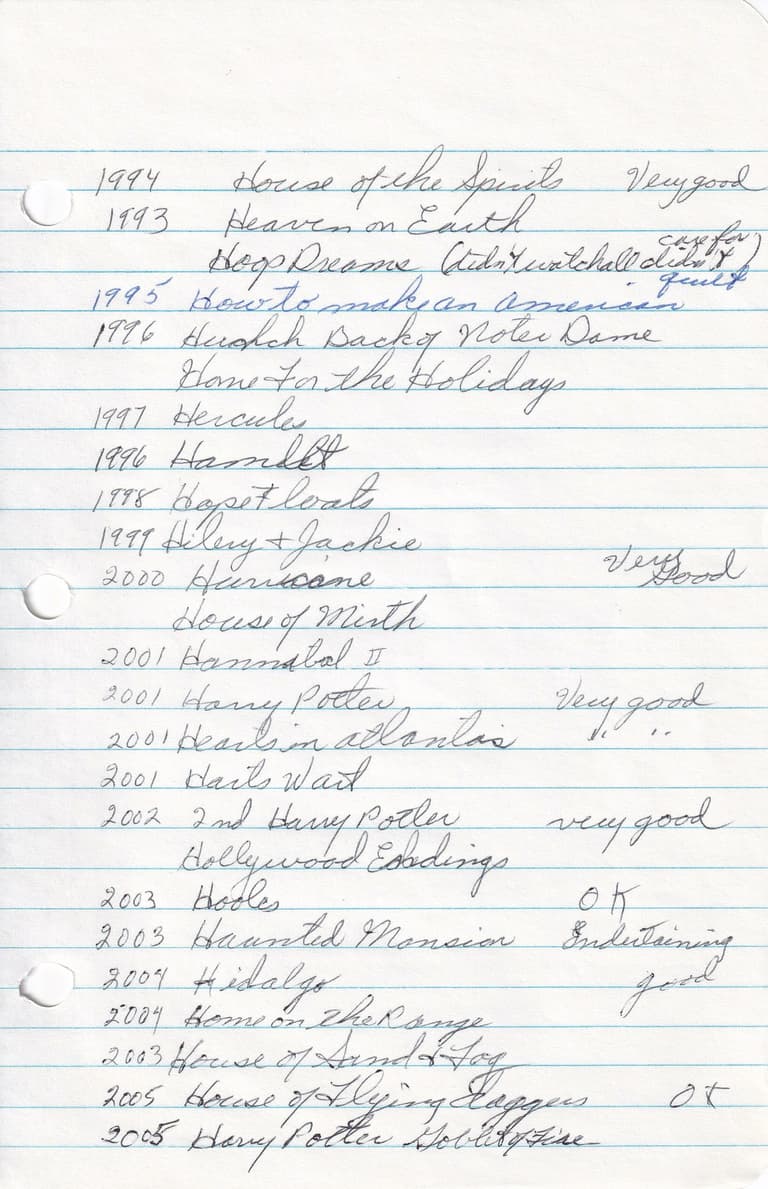 1994 House of the Spirits Very good
1993 Heaven on Earth
Hoop Dreams (didn't watch all didn't care for)
1995 How to make an american quilt
1996 Hunch Back of Noter Dame
Home For the Holidays
1997 Hercules
1996 Hamlet
1998 Hope Floats
1999 Hilery & Jackie
2000 Hurricane Very Good
House of Mirth
2001 Hannabal II
2001 Harry Potter Very good
2001 Hearts in atlantas " "
2001 Harts War
2002 2nd Harry Potter very good
Hollywood Endings
2003 Hooles OK
2003 Haunted Mansion Endertaining
2004 Hidalgo good
2004 Home on the Range
2003 House of Sand & Fog
2005 House of Flying Daggers OK
2005 Harry Potter Goblet of Fire